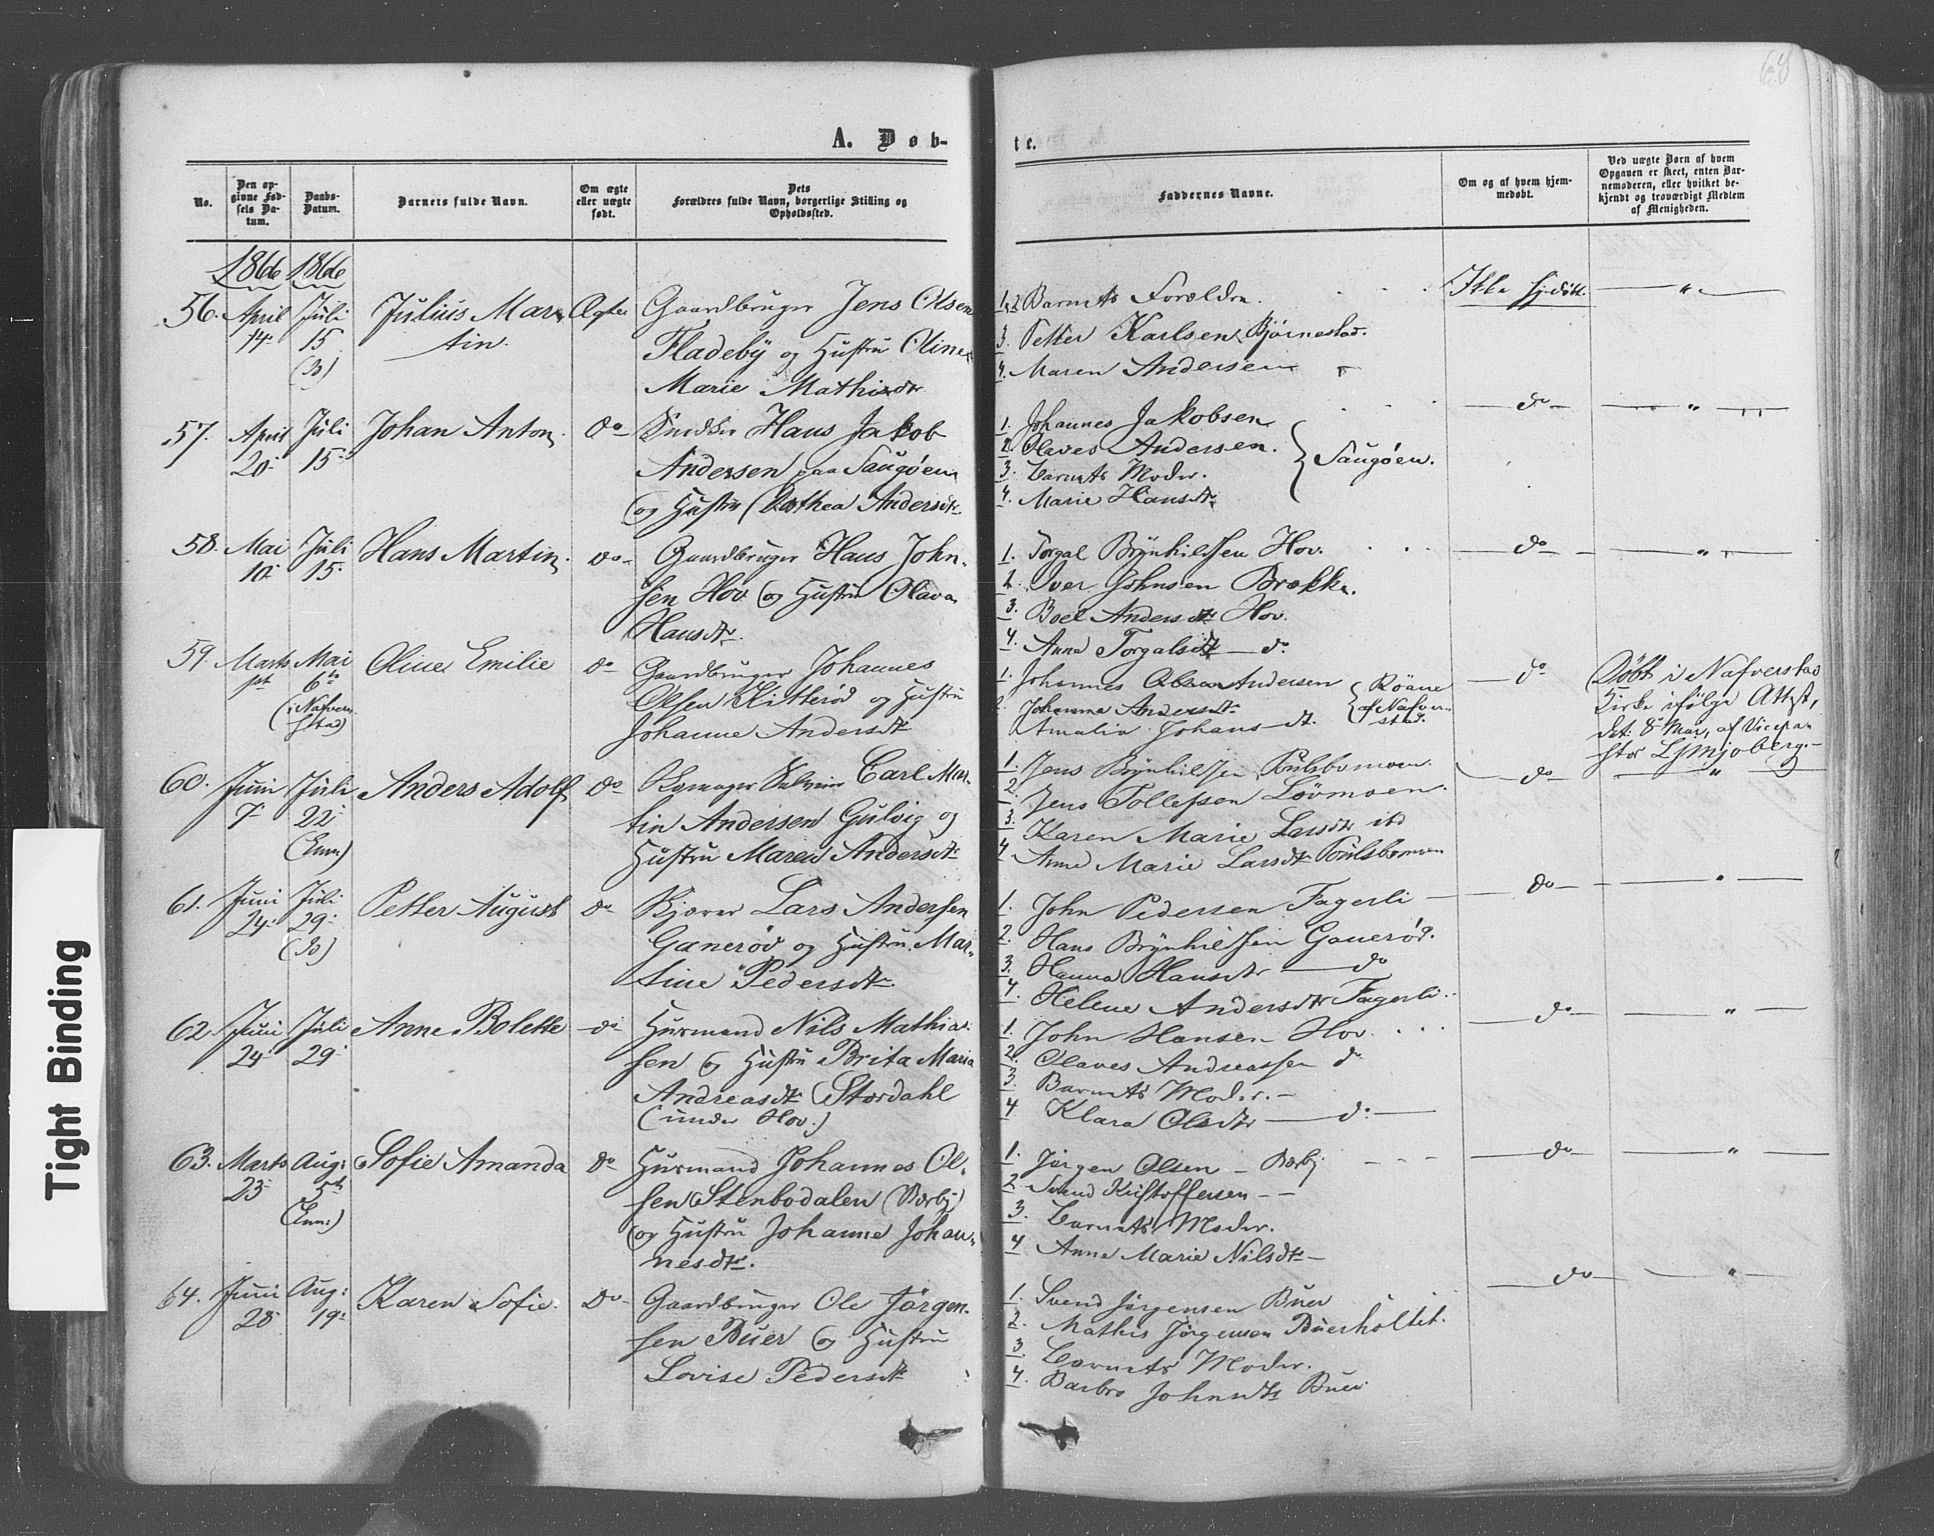 68
A. Døb-
te.
No.
Den op-
givne Fød-
sels Da-
tum.
Daabs-
Datum.
Barnets fulde Navn.
Om ægte
eller uægte
født.
Dets
Forældres fulde Navn, borgerlige Stilling og
Opholdssted.
Faddernes Navne.
Om og af hvem hjem-
medøbt.
Ved uægte Børn af hvem
Opgaven er skeet, enten Bar-
nemoderen, eller hvilket be-
kjendt og troværdigt Medlem
af Menigheden.
1866 1866
56. April 14 Juli 15 Julius Mar-
tin.
Ægte
Gaardbruger Jens Olsen
Fladeby og Hustru Oline
Marie Mathisdtr
1,2 Barnets Forældre.
3. Petter Karlsen Bjørnestad.
4. Maren Andersen "
Ikke hjdøbt. — " —
57. April 20 Juli 15 Johan Anton. do
Snedker Hans Jakob
Andersen paa Saugøen
og Hustru Dorthea Andersdtr.
1. Johannes Jakobsen
2. Olaves Andersen.
3. Barnets Moder.
4. Marie Hansdtr
} Saugøen.
do — " —
58. Mai 10 Juli 15 Hans Martin. do
Gaardbruger Hans John-
sen Hov og Hustru Olava
Hansdtr.
1. Torgal Brynhildsen Hov.
2. Iver Johnsen Brække.
3. Boel Andersdtr Hov.
4. Anna Torgalsdtr — do
do — " —
59. Marts Mai 6te
(i Nafver-
stad)
Oline Emilie do
Gaardbruger Johannes
Olsen Kitterød og Hustru
Johanne Andersdtr
1. Johannes Andersen
2. Johanne Andersdtr
Amalia Johansdt.
{ Röane
af Nafver-
stad.
do
Døbt i Nafverstad
Kirke ifølge Attest,
dat. 8 Mai, af Vicepa-
stor
60. Juni 7 Juli 22
Anders Adolf do
Carl Mar-
tin Andersen Gulvig og
Hustru Maren Andersdtr
1. Jens Brynhildsen Poulsbomoen.
2. Jens Tollefsen Løvmoen.
3. Karen Marie Larsdtr ibd
4. Anne Marie Larsdtr Poulsbomoen
do — " —
61. Juni 24 Juli 29
Petter August do
Lars Andersen
Ganerød og Hustru Mar-
tine Pedersdtr.
1. John Pedersen Fagerli
2. Hans Brynhildsen Ganerød.
3. Hanna Hansdtr — do
4. Helene Andersdtr Fagerli.
do — " —
62. Juni 24 Juli 29 Anne Bolette do
Husmand Nils Mathia-
sen og Hustru Brita Maria
Andreasdtr Stordahl
(under Hov.)
1. John Hansen Hov.
2. Olaves Andreassen do
3. Barnets Moder. —
4 Klara Olsdtr — do —
do — " —
63. Marts 23 Aug: 5te
Sofie Amanda do
Husmand Johannes Ol-
sen Stenbodalen (Bærby)
og Hustru Johanne Johan-
nesdtr.
1. Jørgen Olsen — Bærby
2. Svend Kristoffersen — —
3. Barnets Moder.
4 Anne Marie Nilsdtr —
do — " —
64. Juni 28 Aug: 19 Karen Sofie. Do
Gaardbruger Ole Jørgen-
sen Buer og Hustru
Lovise Pedersdtr
1. Svend Jørgensen Buer
2. Mathis Jørgensen Buerholtet.
3. Barnets Moder.
4. Barbro Johnsdtr Buer
do — " —
Tight Binding